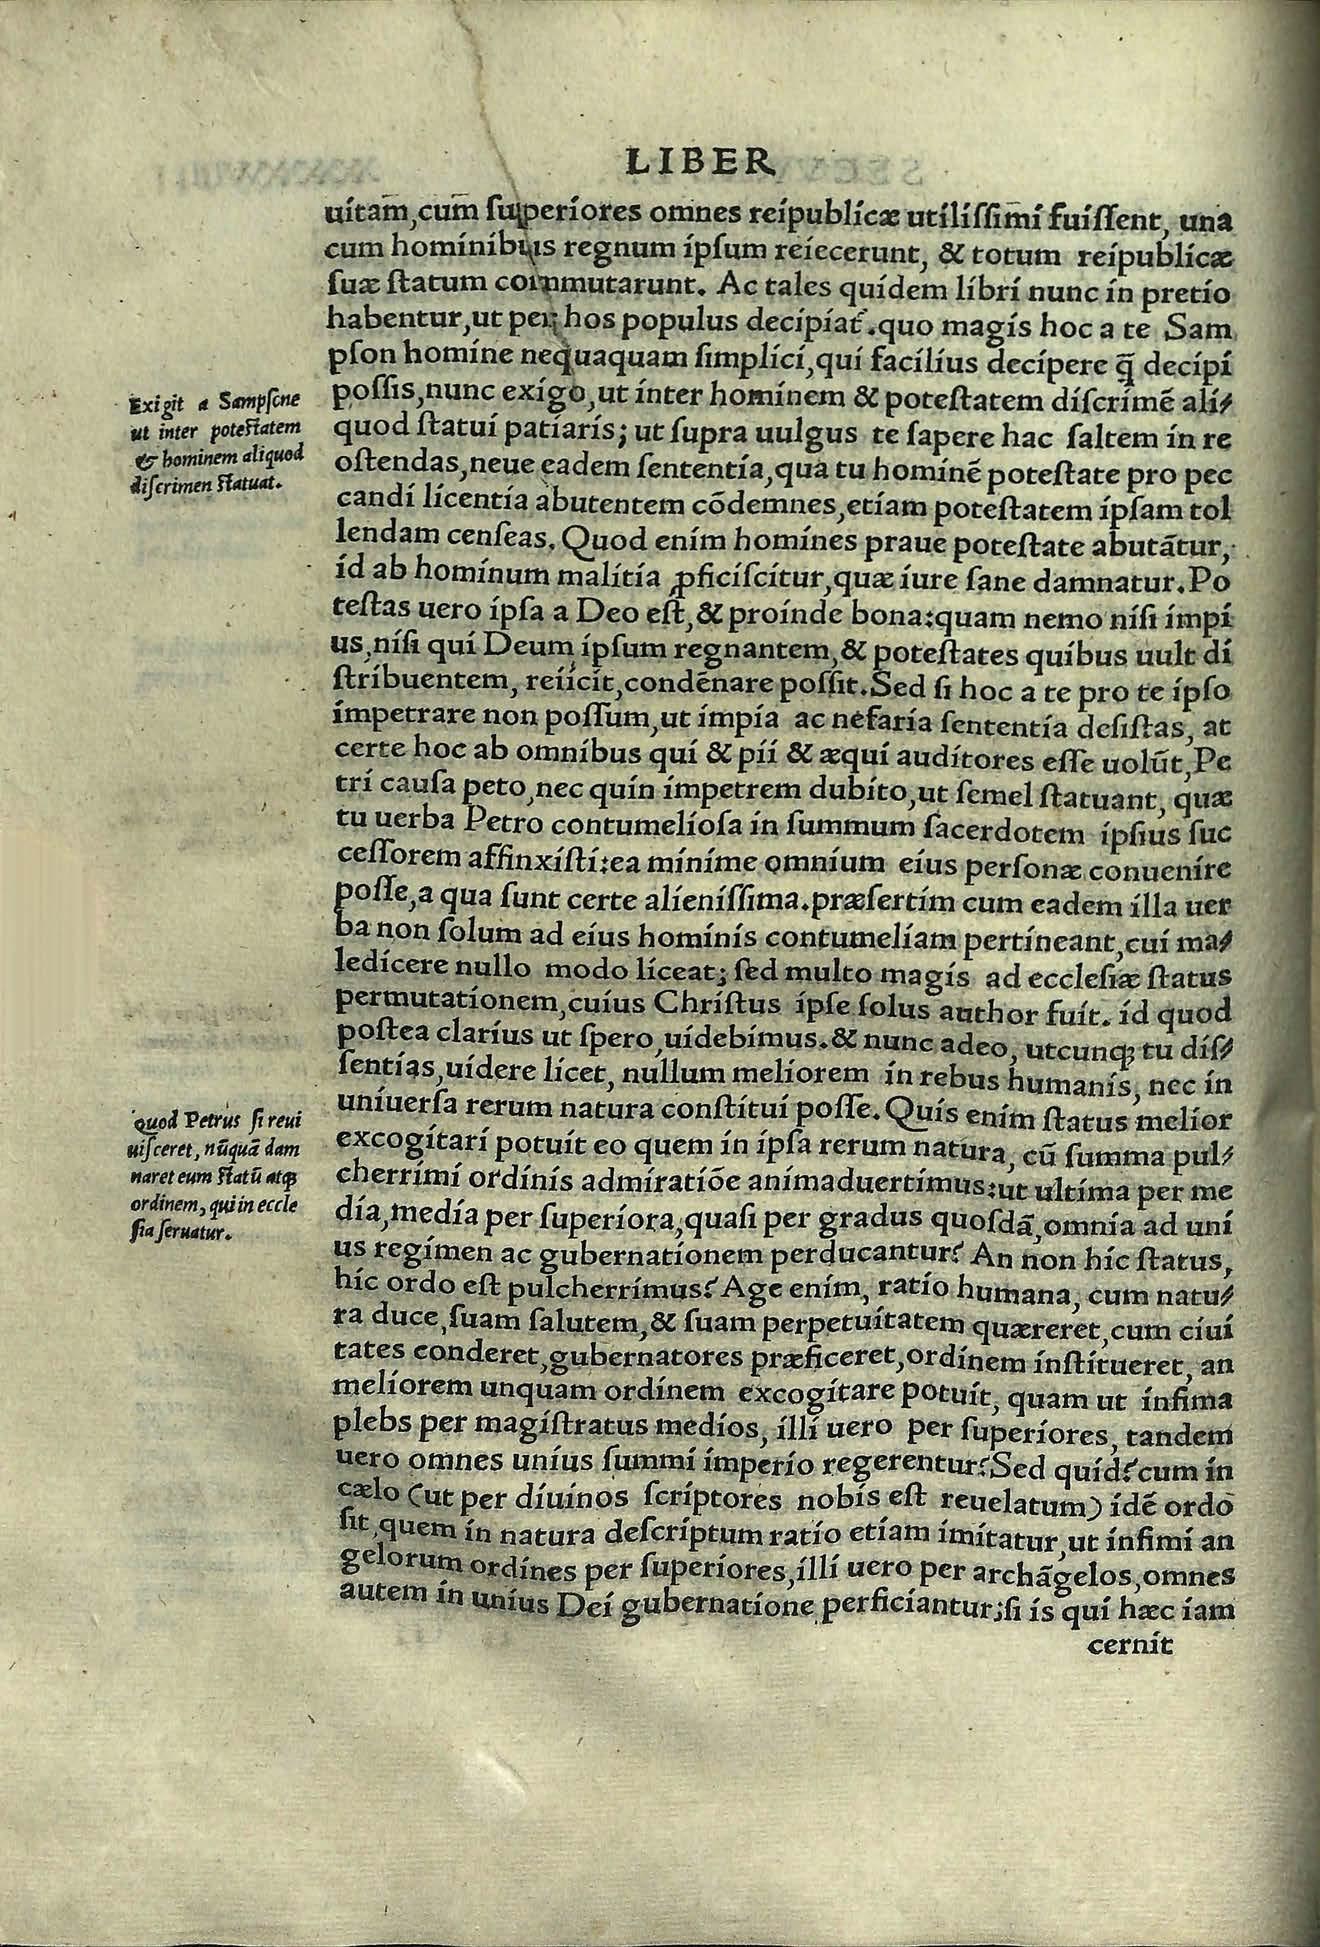 LIBER
uitam̄, cum̄ superiores omnes reipublicæ utilissimi fuissent, una
cum hominibus regnum ipsum reiecerunt, & totum reipublicæ
suæ statum commutarunt. Ac tales quidem libri nunc in pretio
habentur, ut per hos populus decipiat᷑. quo magis hoc a te Sam
pson homine nequaquam simplici, qui facilius decipere q̄ decipi
possis, nunc exigo, ut inter hominem & potestatem discrimē ali⸗
quod statui patiaris; ut supra uulgus te sapere hac saltem in re
ostendas, neue eadem sententia, qua tu hominē potestate pro pec
candi licentia abutentem cōdemnes, etiam potestatem ipsam tol
lendam censeas. Quod enim homines praue potestate abutātur,
id ab hominum malitia ꝓficiscitur, quæ iure sane damnatur. Po
testas uero ipsa a Deo est, & proinde bona: quam nemo nisi impi
us, nisi qui Deum ipsum regnantem, & potestates quibus uult di
stribuentem, reiicit, condēnare possit. Sed si hoc a te pro te ipso
impetrare non possum, ut impia ac nefaria sententia desistas, at
certe hoc ab omnibus qui & pii & æqui auditores esse uolūt, Pe
tri causa peto, nec quin impetrem dubito, ut semel statuant, quæ
tu uerba Petro contumeliosa in summum sacerdotem ipsius suc
cessorem affinxisti: ea minime omnium eius personæ conuenire
posse, a qua sunt certe alienissima. præsertim cum eadem illa uer
ba non solum ad eius hominis contumeliam pertineant, cui ma⸗
ledicere nullo modo liceat; sed multo magis ad ecclesiæ status
permutationem, cuius Christus ipse solus author fuit. id quod
postea clarius ut spero, uidebimus. & nunc adeo, utcunq; tu dis⸗
sentias, uidere licet, nullum meliorem in rebus humanis, nec in
uniuersa rerum natura constitui posse. Quis enim status melior
excogitari potuit eo quem in ipsa rerum natura, cū summa pul⸗
cherrimi ordinis admiratiōe animaduertimus: ut ultima per me
dia, media per superiora, quasi per gradus quosdā, omnia ad uni
us regimen ac gubernationem perducantur? An non hic status,
hic ordo est pulcherrimus? Age enim, ratio humana, cum natu⸗
ra duce, suam salutem, & suam perpetuitatem quæreret, cum ciui
tates conderet, gubernatores præficeret, ordinem institueret, an
meliorem unquam ordinem excogitare potuit, quam ut infima
plebs per magistratus medios, illi uero per superiores, tandem
uero omnes unius summi imperio regerentur? Sed quid? cum in
cælo (ut per diuinos scriptores nobis est reuelatum) idē ordo
sit, quem in natura descriptum ratio etiam imitatur, ut infimi an
gelorum ordines per superiores, illi uero per archāgelos, omnes
autem in unius Dei gubernatione perficiantur; si is qui hæc iam
cernit
Exigit a Sampsone
ut inter potestatem
& hominem aliquod
discrimen statuat.
quod Petrus si reui
uisceret, nūquā dam
naret eum statū atq;
ordinem, qui in eccle
sia seruatur.